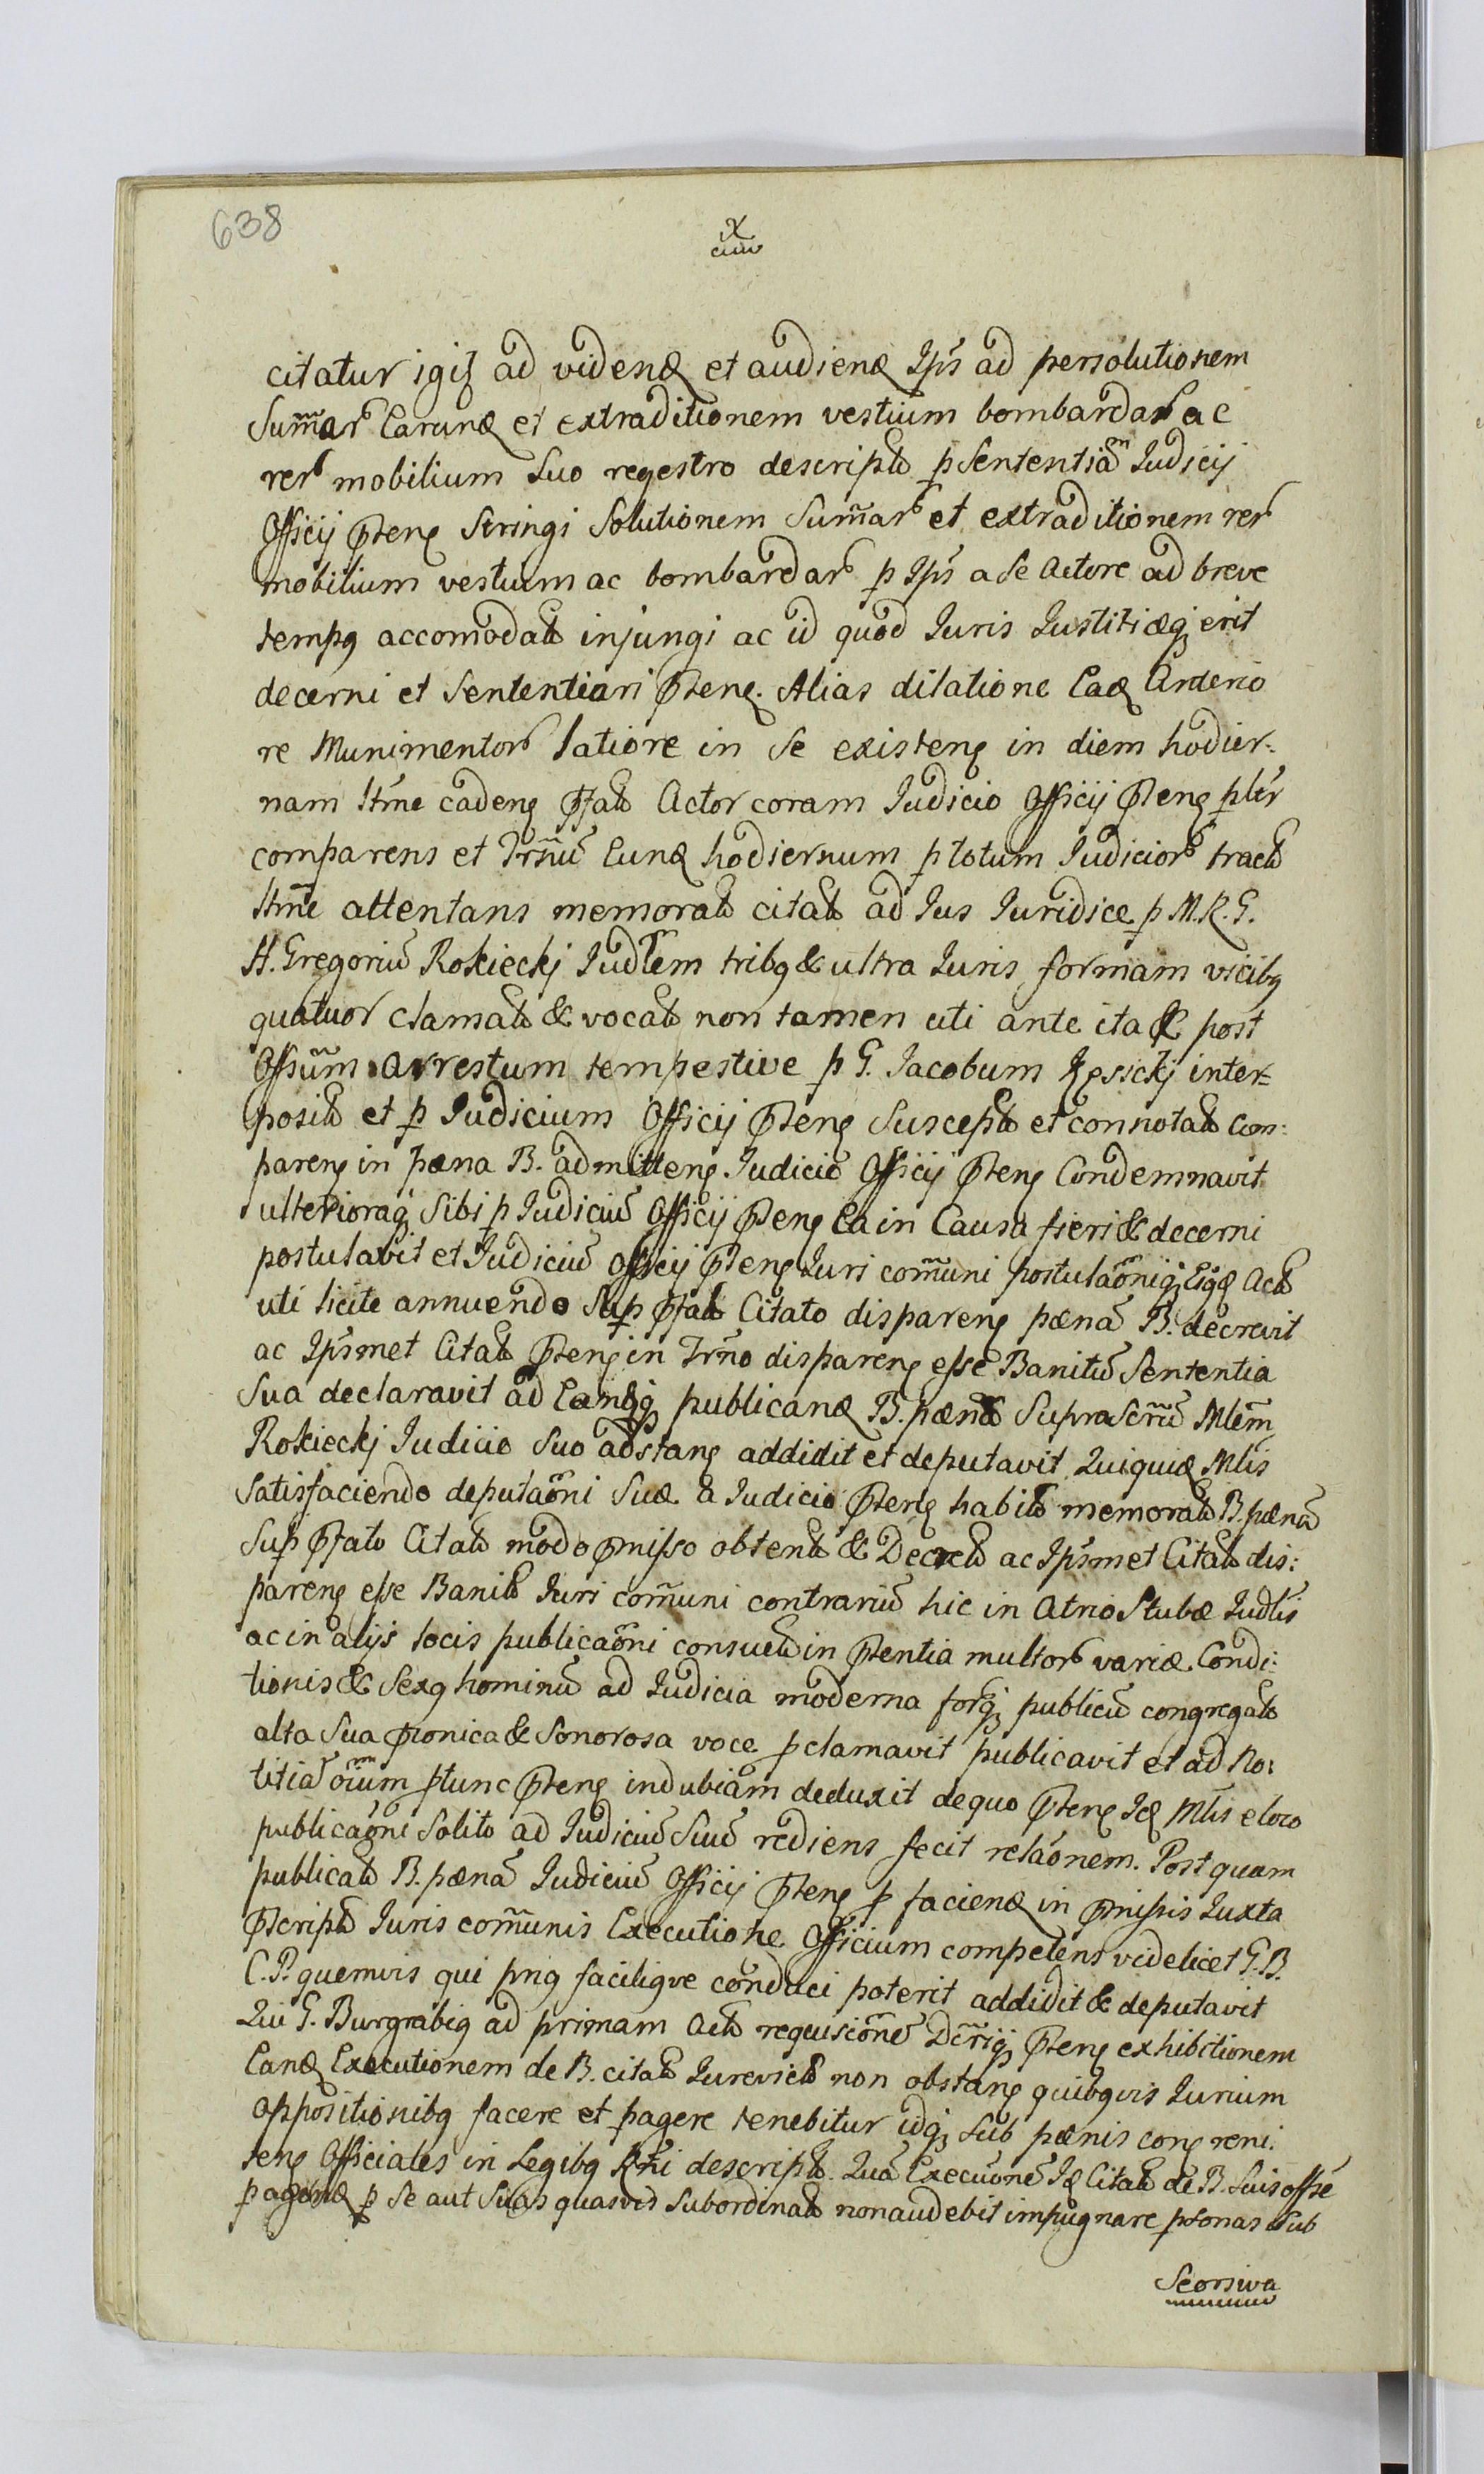 638
ix
citatur igiɫ ad videnꝺ et audienꝺ Ips ad persolutionem
Sum̃ar Earunꝺ et extraditionem vestium bombardar ac
rer mobilium Suo regestro descript p Sententiam Iudicij
Officij pten Stringi Solutionem Sum̃ar et extraditionem rer
mobilium vestium ac bombardar p Ips a Se Actore ad breve
tempꝰ accomodat injungi ac id quod Iuris Iustitiæq erit
decerni et Sententiari pten. Alias dilatione Eaꝺ Anterio
re Munimentor latiore in Se existen in diem hodier:
nam Itm̃e caden pfat Actor coram Iudicio Officij pten pltr
comparens et Trn̄u Eunꝺ hodiernum p totum Iudicior tract
Itm̃e attentans memorat citat ad Ius Iuridice p M. R. G.
H. Gregoriū Rokieckj Iudlem tribꝰ & ultra Iuris formam vicibꝰ
quatuor clamat & vocat non tamen uti ante ita & post
Offiūm arrestum tempestive p G. Iacobum inter=
posit et p Iudicium Officij pten Suscept et connotat Com:
paren in pæna B. admitten Iudicio Officij pten Condemnavit
ulterioraq Sibi p Iudiciū Officij pten Ea in Causa fieri & decerni
postulavit et Iudiciū Officij pten Iuri com̃uni postulaōniq Eiꝰꝺ Act
uti licite annuendo Sup pfat Citato disparen pænā B. decrevit
ac Ipsmet Citat pten in Trn̄o disparen esse Banitū Sententia
Sua declaravit ad Eamq publicanꝺ B. pænā Suprascrū Mlem̃
Rokieckj Iudicio Suo adstan addidit et deputavit Quiquiꝺ Mlis
Satisfaciendo deputaōni Suæ a Iudicio pten habit memorat B. pænā
Sup pfato Citat modo pmisso obtent & Decret ac Ipsmet Citat dis:
paren esse Banit Iuri com̃uni contrariū hic in Atrio Stubæ Iudlis
ac in alijs locis publicaōni consuet in ptentia multor variæ Condi:
tionis & Sexꝰ hominū ad Iudicia moderna forq publicū congregat
alta Sua pconica & Sonorosa voce pclamavit publicavit et ad No:
titiā oīum ptunc pten indubiam deduxit de quo pten Iꝺ Mlis e loco
publicaōni Solito ad Iudiciū Suū rediens fecit relaōnem. Post quam
publicat B. pænā Iudiciū Officij pten p facienꝺ in pmissis Iuxta
pscript Iuris com̃unis Executione Officium competens videlicet G. B.
C. P. quemvis qui prinꝰ faciliꝰve conduci poterit addidit & deputavit
Qui G. Burgrabiꝰ ad primam Act requisiōne Dcrīq pten exhibitionem
Eanꝺ Executionem de B. citat Iurevict non obstan quibꝰvis Iurium
oppositionibꝰ facere et pagere tenebitur idq Sub pænis contra reni:
ten Officiales in Legibꝰ Rni descript. Quā Execuōne Iꝺ Citat de B. Suis offse
pagenꝺ p Se aut Suas quasvis Subordinat non audebit impugnare psonas Sub
Seorsiva